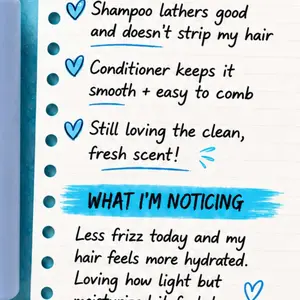 Shampoo lathers good
and doesn't strip my hair
Conditioner keeps it
smooth + easy to comb
Still loving the clean,
fresh scent!
WHAT I'M NOTICING
Less frizz today and my
hair feels more hydrated.
Loving how light but